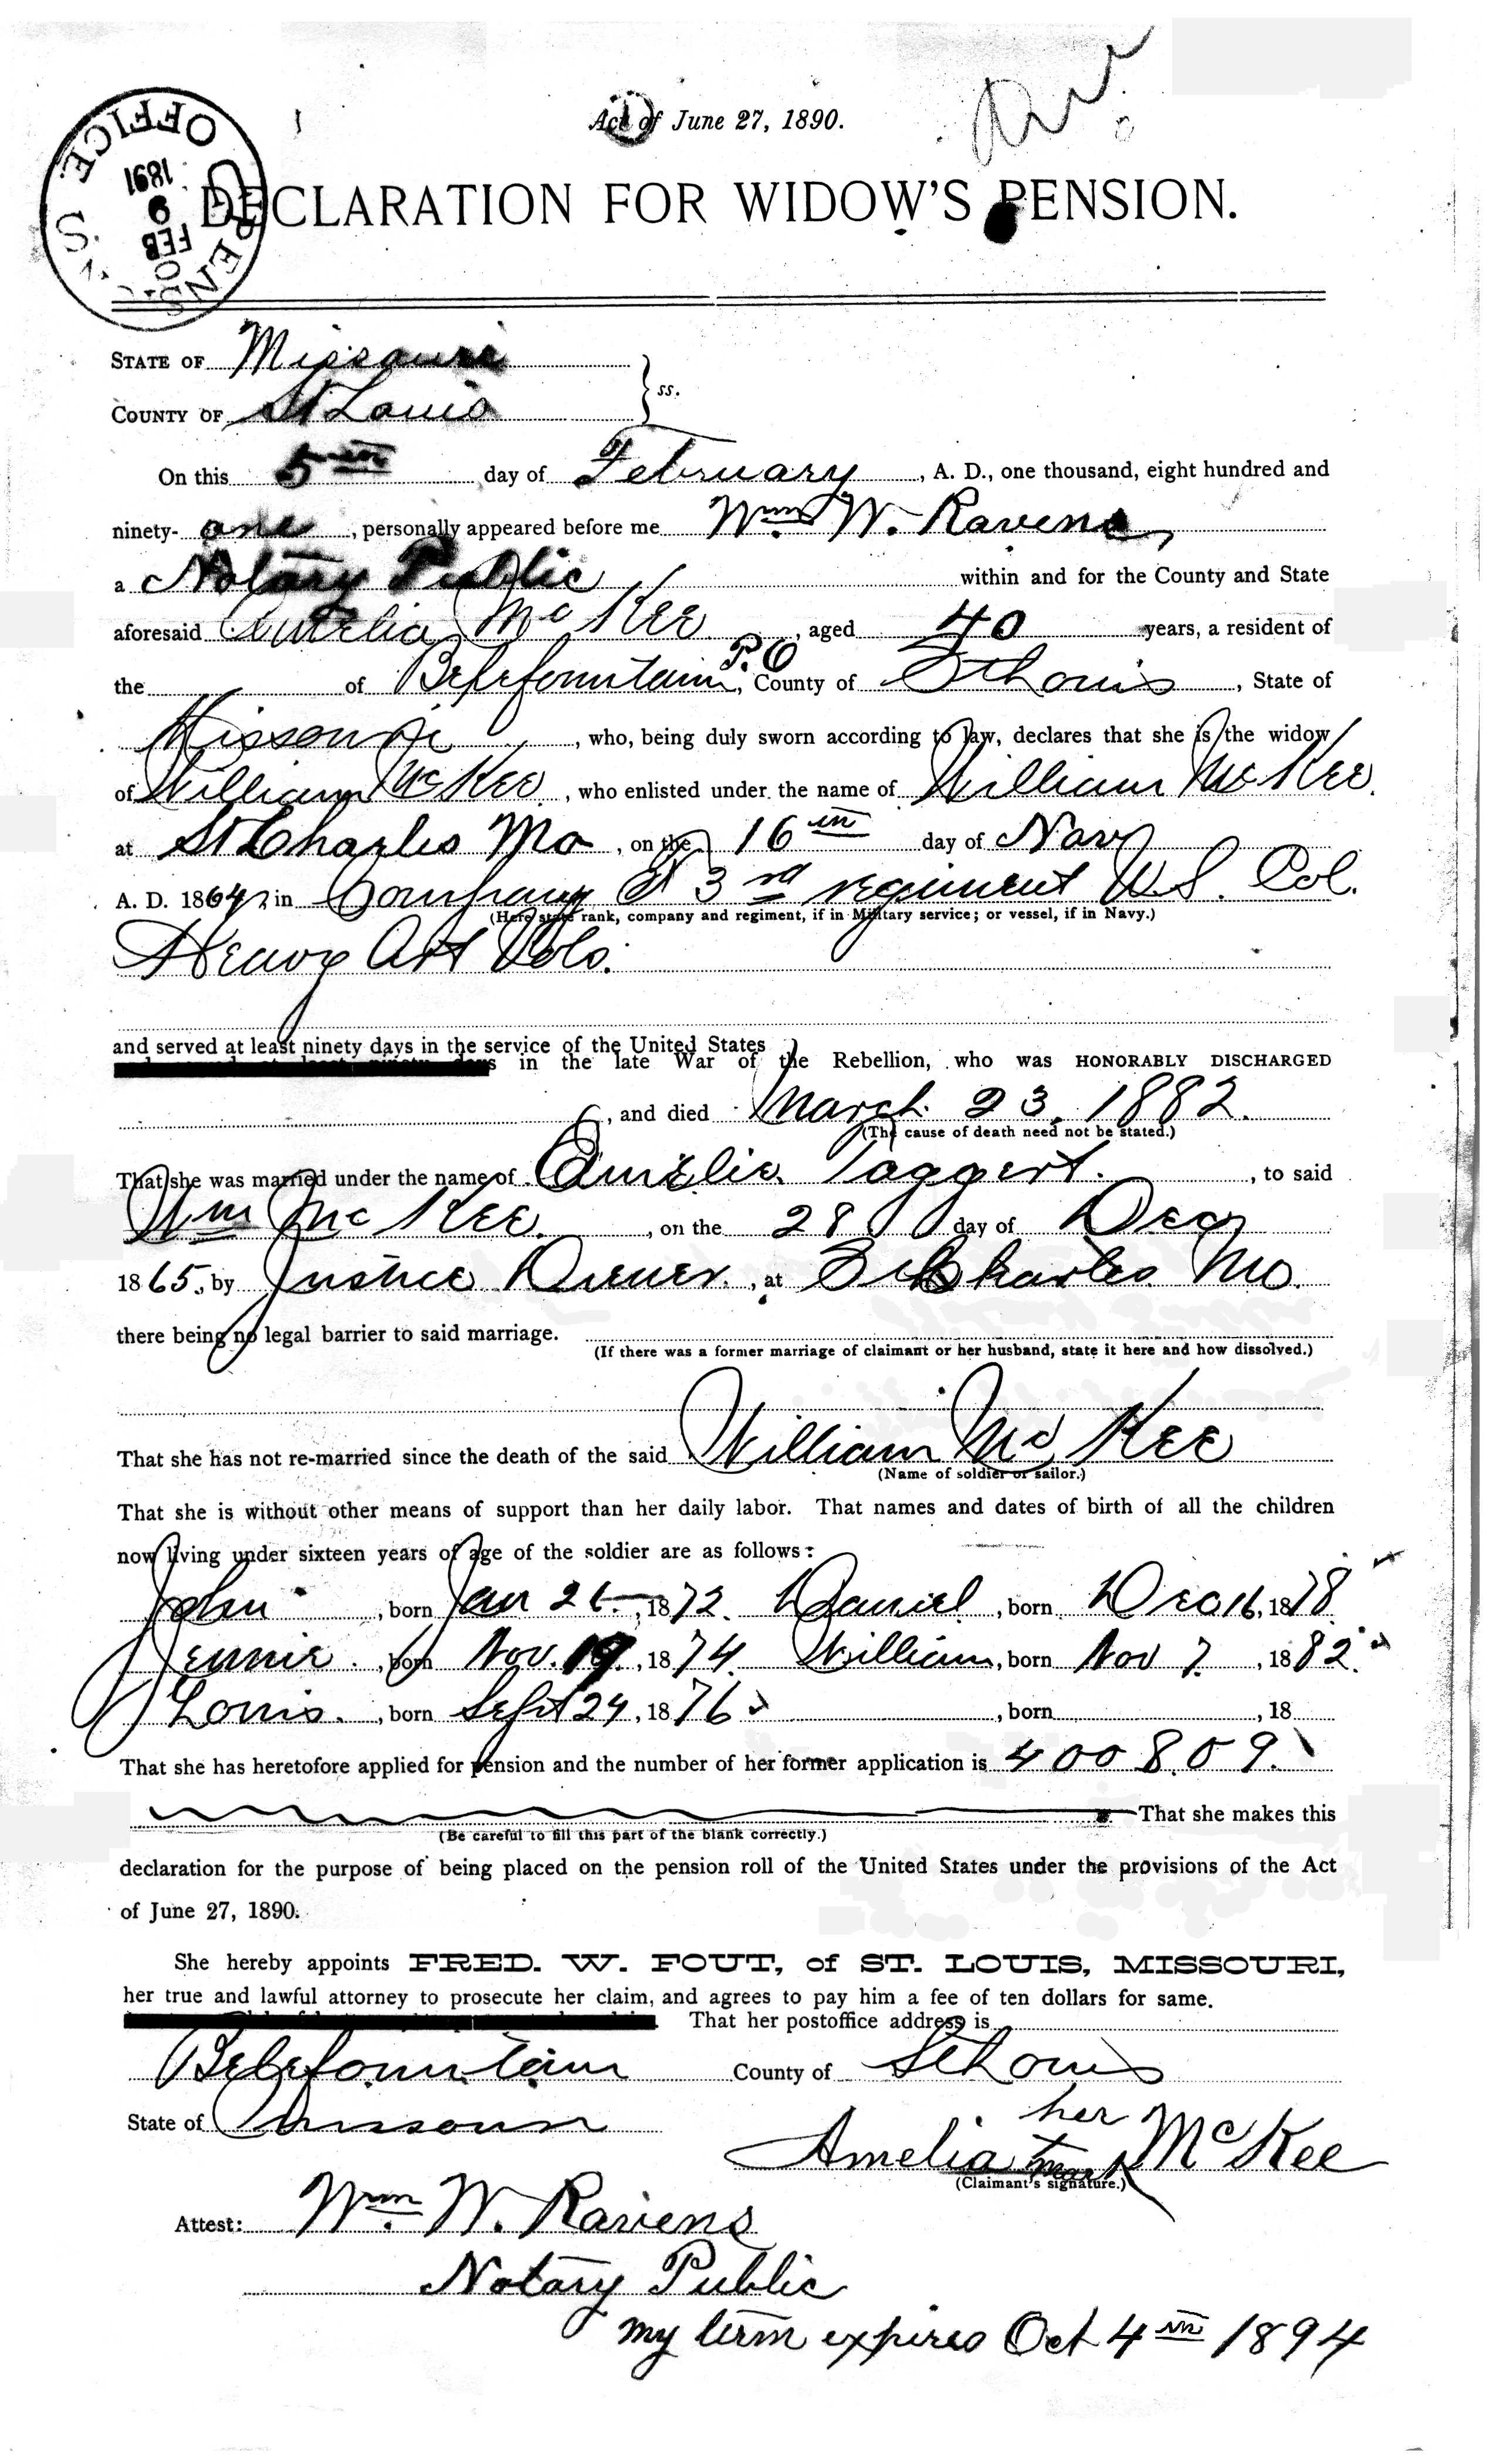 Act of June 27, 1890.
DECLARATION FOR WIDOW'S PENSION.
U.S. PENSION OFFICE
FEB 9 1891
STATE OF Missouri
COUNTY OF St Louis } ss.
On this 5th day of February, A. D., one thousand, eight hundred and
ninety- one, personally appeared before me Wm. W. Ravens,
a Notary Public within and for the County and State
aforesaid Amelia McKee, aged 40 years, a resident of
the of Bellefountain P.O, County of St Louis, State of
Missouri, who, being duly sworn according to law, declares that she is the widow
of William McKee, who enlisted under the name of William McKee
at St Charles Mo, on the 16th day of Nov
A. D. 1864, in Company 3rd regiment U.S. Col.
(Here state rank, company and regiment, if in Military service; or vessel, if in Navy.)
Heavy Art Vols.
and served at least ninety days in the service of the United States
in the late War of the Rebellion, who was HONORABLY DISCHARGED
, and died March 23, 1882.
(The cause of death need not be stated.)
That she was married under the name of Amelia Taggert., to said
Wm McKee., on the 28 day of Dec
1865, by Justice, at St Charles Mo.
there being no legal barrier to said marriage.
(If there was a former marriage of claimant or her husband, state it here and how dissolved.)
That she has not re-married since the death of the said William McKee
(Name of soldier or sailor.)
That she is without other means of support than her daily labor. That names and dates of birth of all the children
now living under sixteen years of age of the soldier are as follows:
John, born Jan 26, 1872. Daniel, born Dec 16, 1878
Jennie., born Nov. 19, 1874 William, born Nov 7, 1882.
Louis., born Sept 24, 1876 , born , 18
That she has heretofore applied for pension and the number of her former application is 400809.
That she makes this
(Be careful to fill this part of the blank correctly.)
declaration for the purpose of being placed on the pension roll of the United States under the provisions of the Act
of June 27, 1890.
She hereby appoints FRED. W. FOUT, of ST. LOUIS, MISSOURI,
her true and lawful attorney to prosecute her claim, and agrees to pay him a fee of ten dollars for same.
That her postoffice address is
Bellefountain County of St Louis
State of Missouri
her
Amelia + McKee
mark
(Claimant's signature.)
Attest: Wm. W. Ravens
Notary Public
my term expires Oct 4th 1894